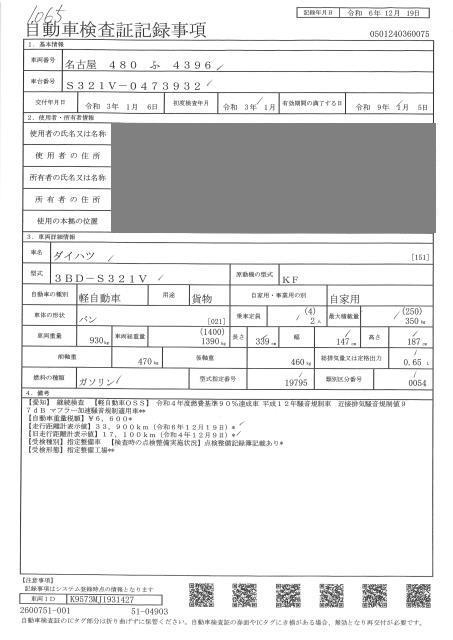 1065
記録年月日 令和 6年12月 19日
自動車検査証記録事項
0501240360075
1. 基本情報
車両番号 名古屋 480 ふ 4396
車台番号 S321V-0473932
交付年月日 令和 3年 1月 6日 初度検査年月 令和 3年 1月 有効期間の満了する日 令和 9年 1月 5日
2. 使用者・所有者情報
使用者の氏名又は名称
使用者の住所
所有者の氏名又は名称
所有者の住所
使用の本拠の位置
3. 車両詳細情報
車名 ダイハツ [151]
型式 3BD-S321V 原動機の型式 KF
自動車の種別 軽自動車 用途 貨物 自家用・事業用の別 自家用
車体の形状 バン [021] 乗車定員 (4) 2人 最大積載量 (250) 350kg
車両重量 930kg 車両総重量 (1400) 1390kg 長さ 339cm 幅 147cm 高さ 187cm
前軸重 470kg 後軸重 460kg 総排気量又は定格出力 0.65 L
燃料の種類 ガソリン 型式指定番号 19795 類別区分番号 0054
4. 備考
【愛知】 継続検査 【軽自動車OSS】 令和4年度燃費基準90%達成車 平成12年騒音規制車 近接排気騒音規制値9
7dB マフラー加速騒音規制適用車**
【自動車重量税額】¥6,600*
【走行距離計表示値】33,900km(令和6年12月19日)*
【旧走行距離計表示値】17,100km(令和4年12月9日)*
【受検種別】指定整備車 【検査時の点検整備実施状況】点検整備記録簿記載あり*
【受検形態】指定整備工場**
【注意事項】
記録事項はシステム登録時点の情報となります
車両ID K9573MJ1931427
2600751-001 51-04903
自動車検査証のICタグ部分は折り曲げずに保管ください。自動車検査証の券面やICタグに弁損がある場合、無効となり再交付が必要です。